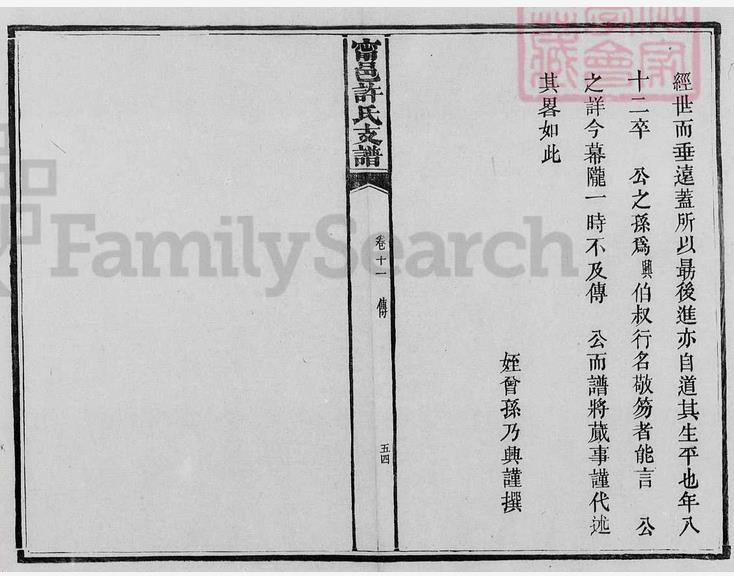 經世而垂遠蓋所以最後進亦自道其生平也年八
十二卒 公之孫爲興伯叔行名敬笏者能言 公
之詳今幕隴一時不及傳 公而譜將蕆事謹代述
其畧如此
姪曾孫乃興謹撰
甯邑許氏支譜
卷十一 傳
五四
FamilySearch